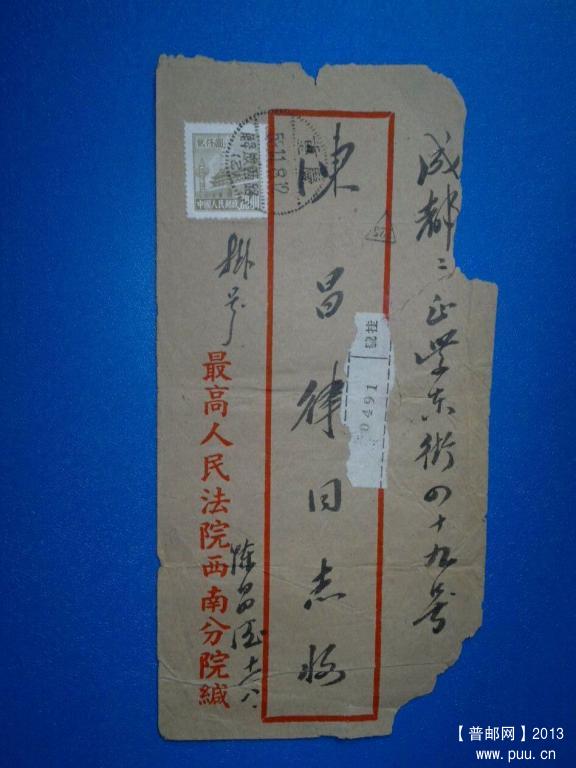 成都
正学东街四十九号
陳昌律同志收
掛号
最高人民法院西南分院緘
陈昌
贰仟圆
中國人民郵政
53.11.8.12
0491
【普邮网】2013
www.puu.cn